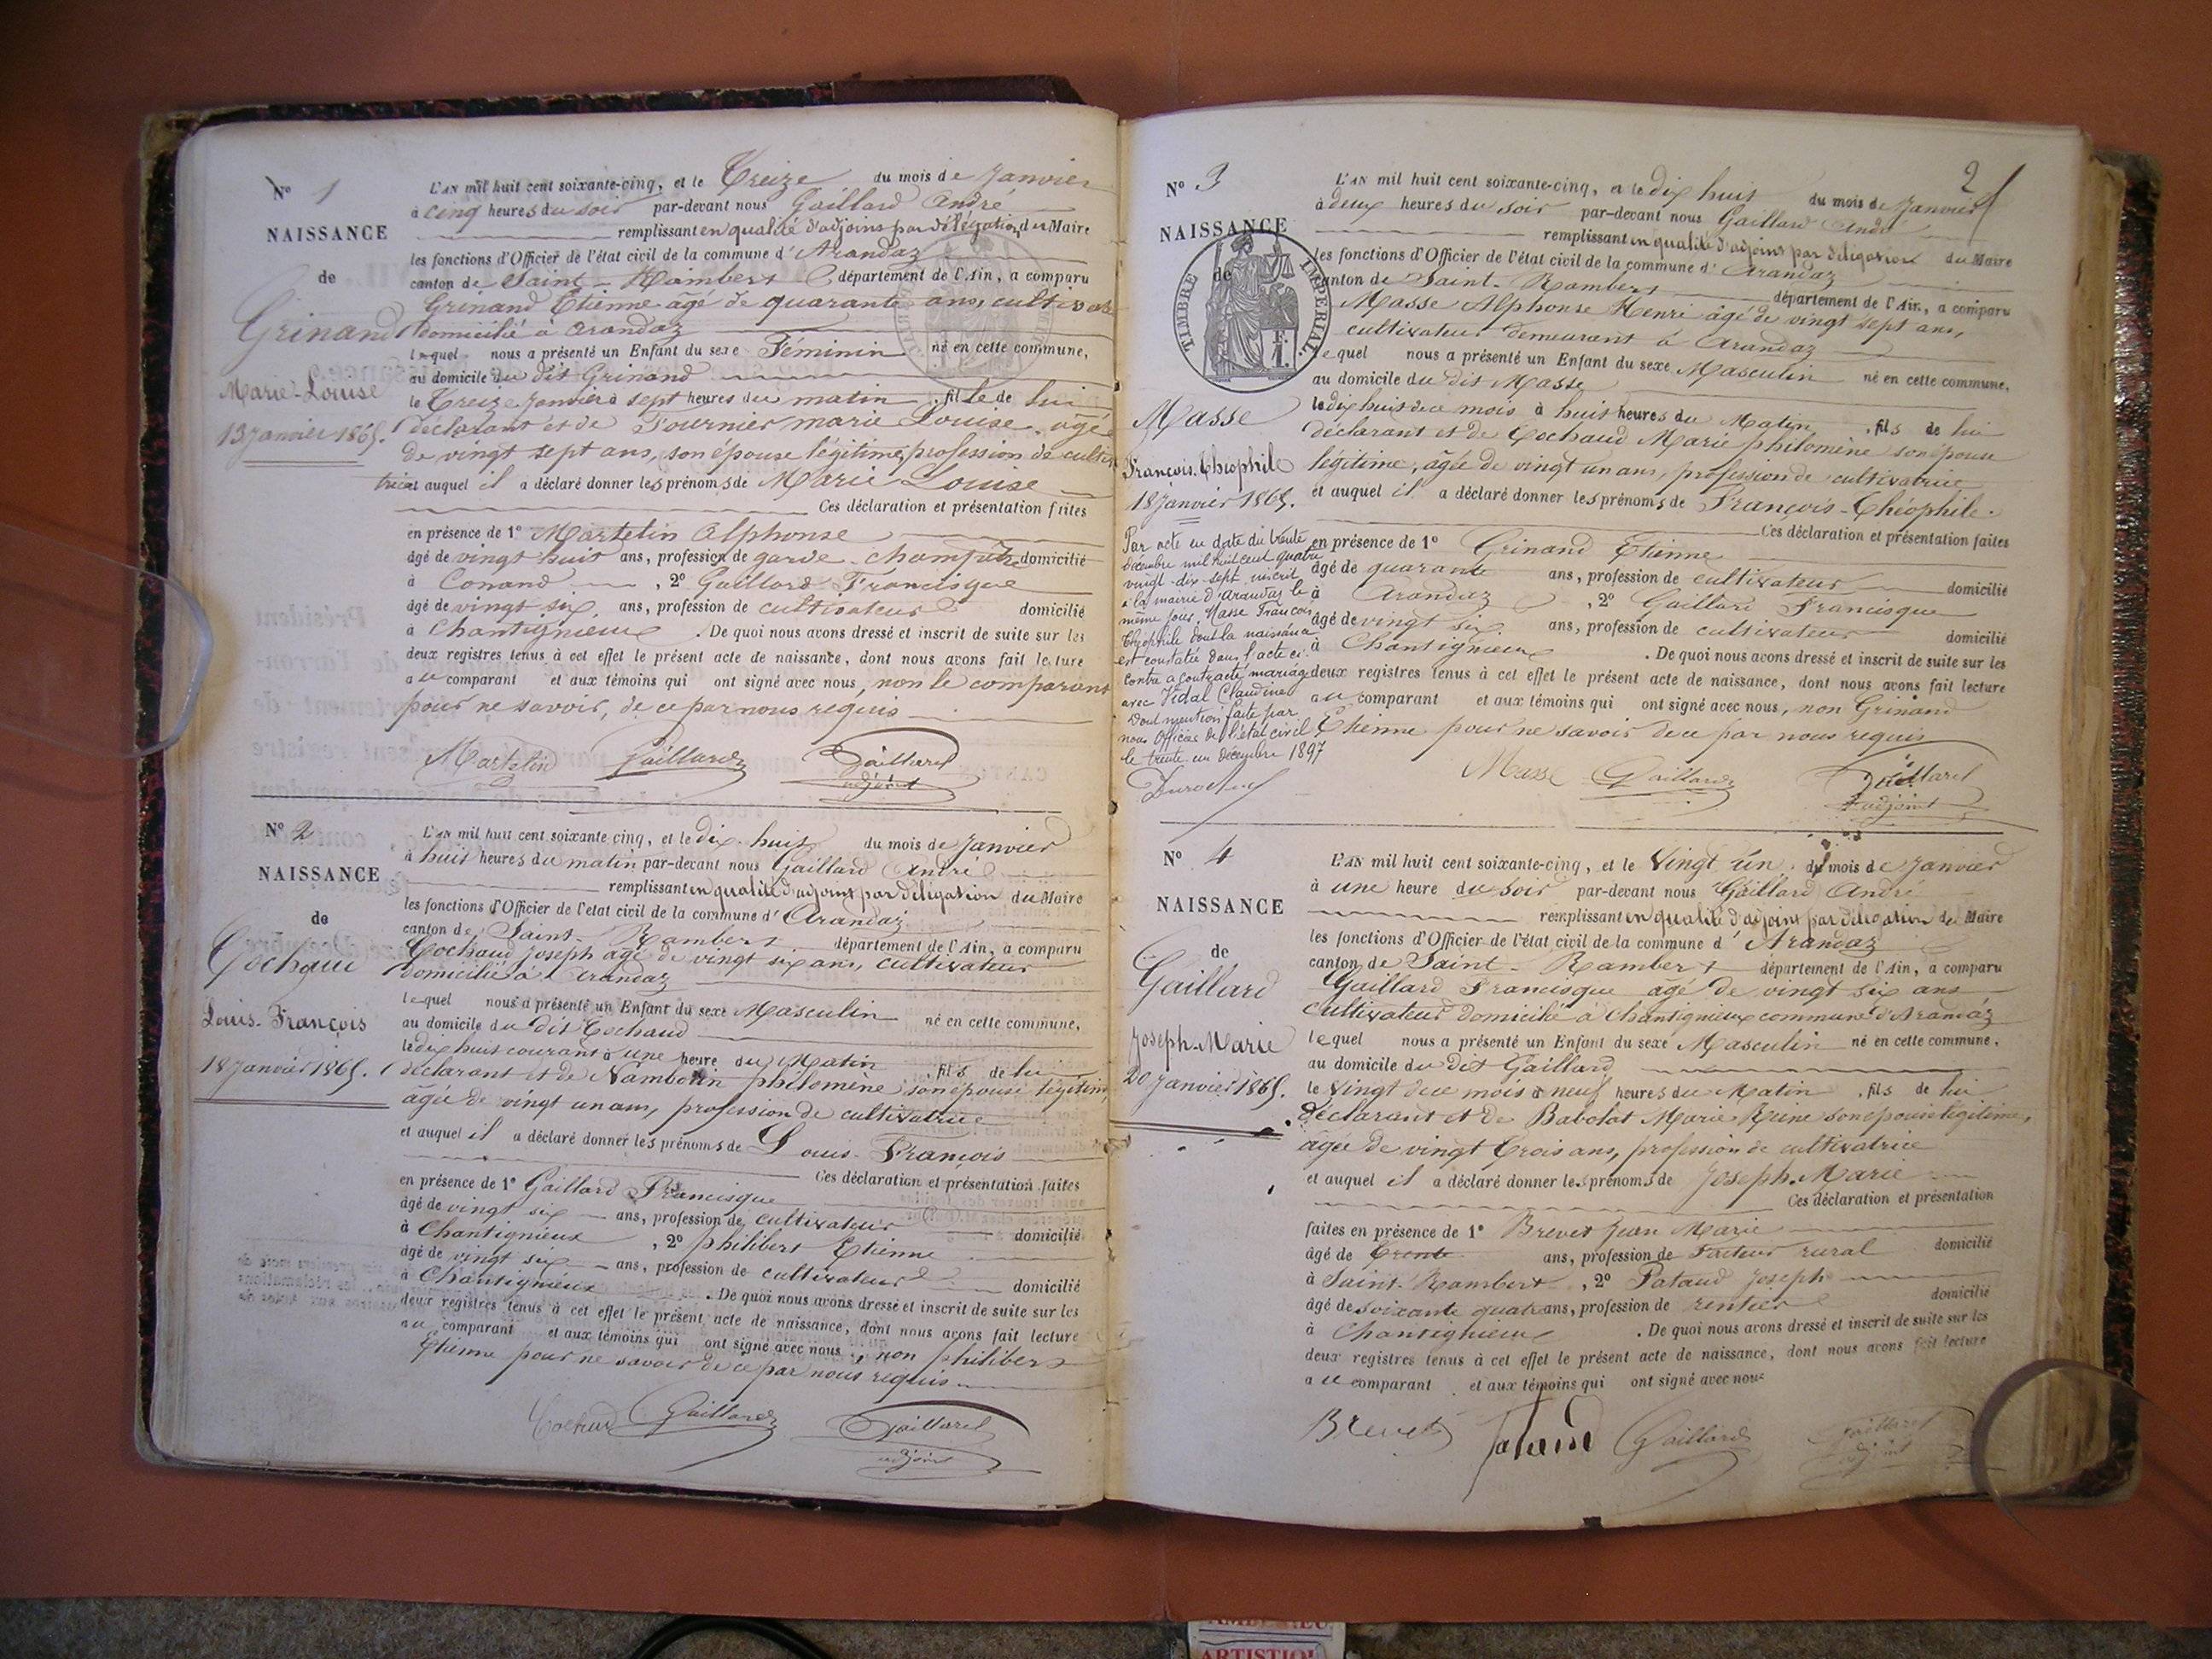 N° 1
NAISSANCE
de
Grinand
Marie-Louise
13 Janvier 1865.
L'AN mil huit cent soixante-cinq, et le Treize du mois de Janvier
à cinq heures du soir par-devant nous Gaillard André
remplissant en qualité d'adjoint par délégation du Maire
les fonctions d'Officier de l'état civil de la commune d'Arandaz
canton de Saint-Rambert département de l'Ain, a comparu
Grinand Etienne agé de quarante ans, cultivat
domicilié à Arandaz
lequel nous a présenté un Enfant du sexe Féminin né en cette commune,
au domicile du dit Grinand
le Treize Janvier à sept heures du matin, fille de lui
déclarant et de Fournier marie Louise, agée
de vingt sept ans, son épouse légitime, profession de cultiva
trice et auquel il a déclaré donner les prénoms de Marie Louise
Ces déclaration et présentation faites
en présence de 1° Martelin Alphonse
âgé de vingt huit ans, profession de garde-champêtre domicilié
à Conand, 2° Gaillard Francisque
âgé de vingt six ans, profession de cultivateur domicilié
à Chantignieux. De quoi nous avons dressé et inscrit de suite sur les
deux registres tenus à cet effet le présent acte de naissance, dont nous avons fait lecture
au comparant et aux témoins qui ont signé avec nous, non le comparant
pour ne savoir, de ce par nous requis
Martelin Gaillard Gaillard
adjoint
N° 2
NAISSANCE
de
Cochaud
Louis-François
18 Janvier 1865.
L'AN mil huit cent soixante-cinq, et le dix-huit du mois de Janvier
à huit heures du matin par-devant nous Gaillard André
remplissant en qualité d'adjoint par délégation du Maire
les fonctions d'Officier de l'état civil de la commune d'Arandaz
canton de Saint-Rambert département de l'Ain, a comparu
Cochaud Joseph agé de vingt six ans, cultivateur
domicilié à Arandaz
lequel nous a présenté un Enfant du sexe Masculin né en cette commune,
au domicile du dit Cochaud
le dix huit courant à une heure du Matin, fils de lui
déclarant et de Nambotin philomène son épouse légitime,
âgée de vingt un ans, profession de cultivatrice
et auquel il a déclaré donner les prénoms de Louis-François
Ces déclaration et présentation faites
en présence de 1° Gaillard Francisque
âgé de vingt six ans, profession de cultivateur domicilié
à Chantignieux, 2° philibert Etienne
âgé de vingt six ans, profession de cultivateur domicilié
à Chantignieux. De quoi nous avons dressé et inscrit de suite sur les
deux registres tenus à cet effet le présent acte de naissance, dont nous avons fait lecture
au comparant et aux témoins qui ont signé avec nous, non philibert
Etienne pour ne savoir de ce par nous requis
Cochaud Gaillard Gaillard
adjoint
2
N° 3
NAISSANCE
de
TIMBRE IMPERIAL
Masse
François-Théophile
18 Janvier 1865.
Par acte en date du trente
décembre mil huit cent quatre
vingt-dix-sept inscrit
à la mairie d'Arandas le
même jour, Masse François
Théophile dont la naissance
est constatée dans l'acte ci-
contre a contracté mariage
avec Vidal Claudine
Dont mention faite par
nous Officier de l'état civil
le trente un décembre 1897
L'AN mil huit cent soixante-cinq, et le dix huit du mois de Janvier
à deux heures du soir par-devant nous Gaillard André
remplissant en qualité d'adjoint par délégation du Maire
les fonctions d'Officier de l'état civil de la commune d'Arandaz
canton de Saint-Rambert département de l'Ain, a comparu
Masse Alphonse Henri âgé de vingt sept ans,
cultivateur demeurant à Arandaz
lequel nous a présenté un Enfant du sexe Masculin né en cette commune,
au domicile du dit Masse
le dix huit du mois à huit heures du Matin, fils de lui
déclarant et de Cochaud Marie philomène son épouse
légitime, âgée de vingt un ans, profession de cultivatrice
et auquel il a déclaré donner les prénoms de François-Théophile.
Ces déclaration et présentation faites
en présence de 1° Grinand Etienne
âgé de quarante ans, profession de cultivateur domicilié
à Arandaz, 2° Gaillard Francisque
âgé de vingt six ans, profession de cultivateur domicilié
à Chantignieux. De quoi nous avons dressé et inscrit de suite sur les
deux registres tenus à cet effet le présent acte de naissance, dont nous avons fait lecture
au comparant et aux témoins qui ont signé avec nous, non Grinand
Etienne pour ne savoir de ce par nous requis
Masse Gaillard Gaillard
adjoint
N° 4
NAISSANCE
de
Gaillard
Joseph-Marie
20 Janvier 1865.
L'AN mil huit cent soixante-cinq, et le Vingt un du mois de Janvier
à une heure du soir par-devant nous Gaillard André
remplissant en qualité d'adjoint par délégation du Maire
les fonctions d'Officier de l'état civil de la commune d'Arandaz
canton de Saint-Rambert département de l'Ain, a comparu
Gaillard Francisque agé de vingt six ans
cultivateur domicilié à Chantignieux commune d'Arandaz
lequel nous a présenté un Enfant du sexe Masculin né en cette commune,
au domicile du dit Gaillard
le Vingt du mois à neuf heures du Matin, fils de lui
déclarant et de Babolat Marie Reine son épouse légitime,
âgée de vingt trois ans, profession de cultivatrice
et auquel il a déclaré donner les prénoms de Joseph-Marie
Ces déclaration et présentation
faites en présence de 1° Brevet Jean Marie
âgé de trente ans, profession de Facteur rural domicilié
à Saint-Rambert, 2° Pataud Joseph
âgé de soixante quatre ans, profession de rentier domicilié
à Chantignieux. De quoi nous avons dressé et inscrit de suite sur les
deux registres tenus à cet effet le présent acte de naissance, dont nous avons fait lecture
au comparant et aux témoins qui ont signé avec nous
Brevet Pataud Gaillard Gaillard
adjoint
ARTISTIQ